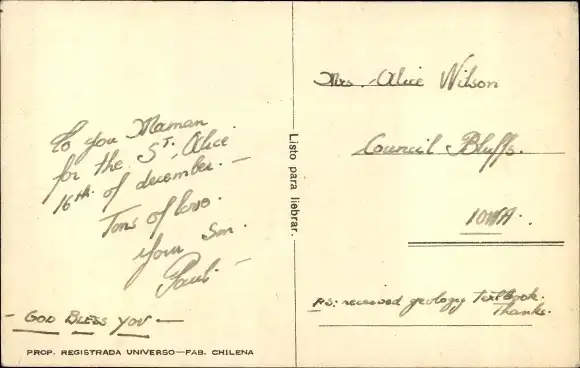 To you Maman
for the St. Alice
16th of december. —
Tons of love.
your Son.
Paul. —
- GOD BLESS YOU —
PROP. REGISTRADA UNIVERSO—FAB. CHILENA
Listo para liebrar.
Mrs. Alice Wilson
Council Bluffs.
IOWA.
PS: received geology Textbook.
Thanks.